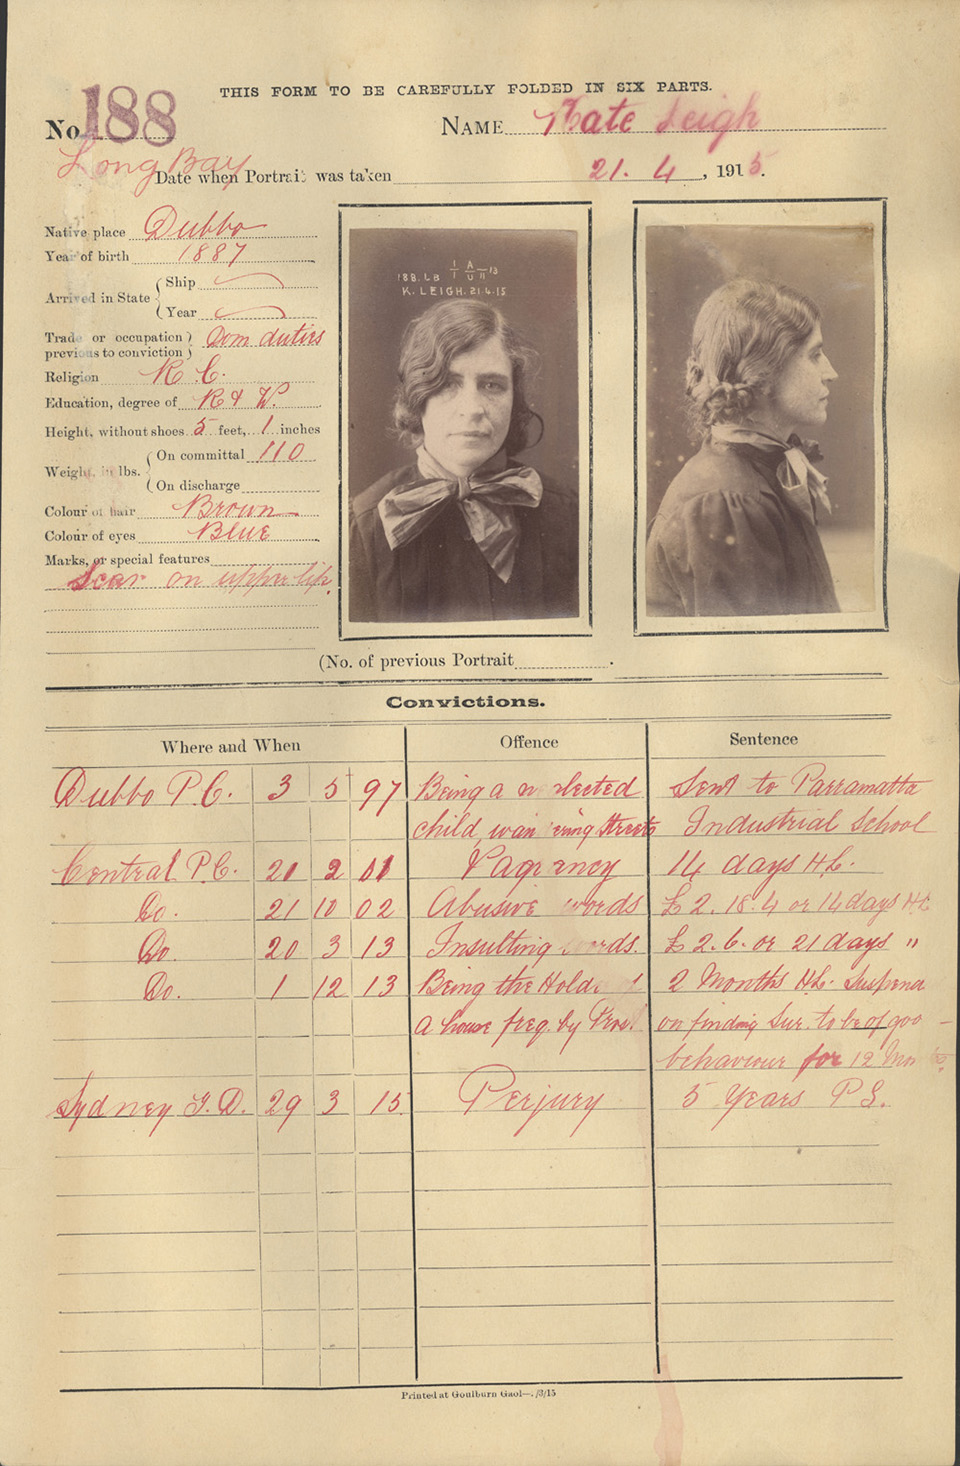 THIS FORM TO BE CAREFULLY FOLDED IN SIX PARTS.
No. 188
NAME Kate Leigh
Long Bay
Date when Portrait was taken 21. 4, 1915.
Native place Dubbo
Year of birth 1887
Arrived in State
Ship
Year
Trade or occupation previous to conviction Dom duties
Religion R. C.
Education, degree of R & W.
Height, without shoes 5 feet, 1 inches
Weight, in lbs.
On committal 110
On discharge
Colour of hair Brown
Colour of eyes Blue
Marks, or special features
Scar on upper lip.
188. LB 1/1 A/U 13/11
K. LEIGH. 21.4.15
(No. of previous Portrait .
Convictions.
Where and When Offence Sentence
Dubbo P.C. 3 5 97 Being a n lected Sent to Parramatta
child, wan ering streets Industrial School
Central P.C. 20 2 01 Vagrancy 14 days H.L.
Do. 21 10 02 Abusive words £2.18.4 or 14 days H.L.
Do. 20 3 13 Insulting words. £2.6. or 21 days "
Do. 1 12 13 Being the Hold 2 Months H.L. Suspend
a house freq. by Pros. on finding Sur. to be of goo
behaviour for 12 Mo
Sydney G.D. 29 3 15 Perjury 5 Years P.S.
Printed at Goulburn Gaol—/3/15